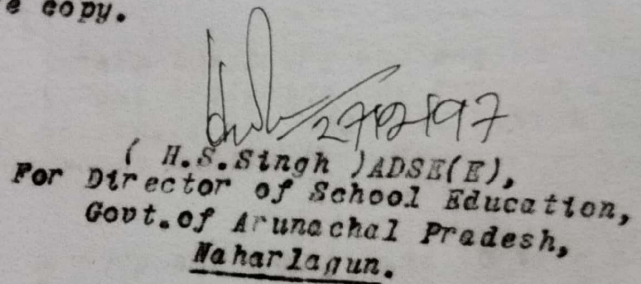 e copy.
27/12/97
( H.S.Singh )ADSE(E),
For Director of School Education,
Govt.of Arunachal Pradesh,
Naharlagun.